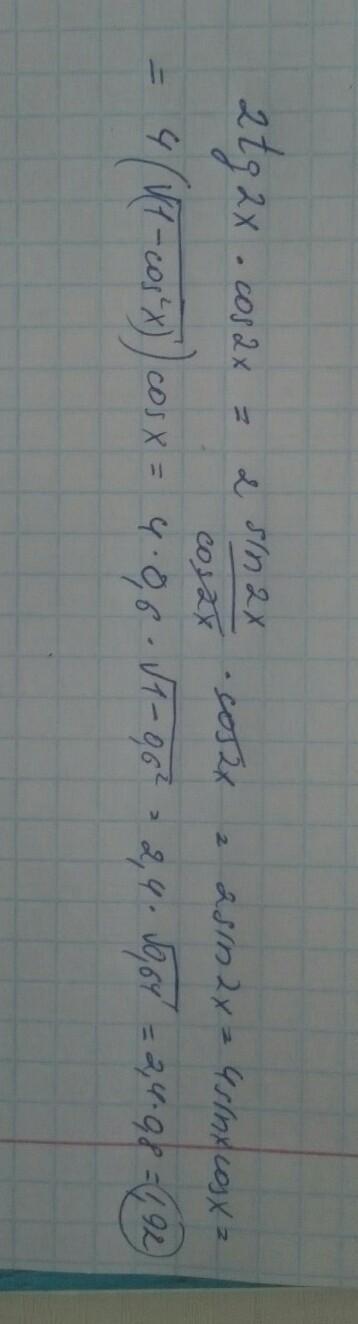 2tg2x · cos2x = 2 sin2x/cos2x · cos2x = 2sin2x = 4sinxcosx =
= 4(√(1-cos²x))cosx = 4·0,6·√(1-0,6²) = 2,4·√0,64 = 2,4·0,8 = 1,92